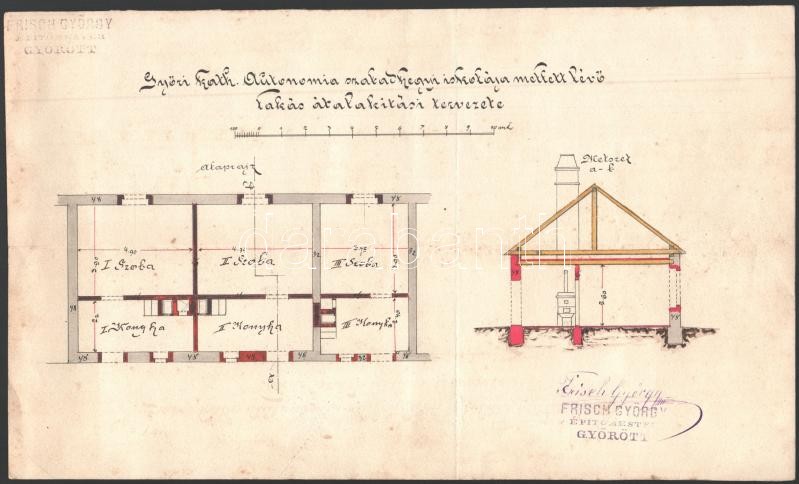 FRISCH GYÖRGY
ÉPITŐMESTER
GYŐRÖTT
Győri kath. Autonomia szabadhegyi iskolája mellett lévő
lakás átalakitási tervezete
0 1 2 3 4 5 6 7 8 9 10 mtr.
Alaprajz
Metszet
a-b
48 48 48
4.90
I Szoba II Szoba III Szoba
48
I Konyha II Konyha III Konyha
48 48 48
2.60
48
Frisch György
FRISCH GYÖRGY
ÉPITŐMESTER
GYŐRÖTT
darabanth